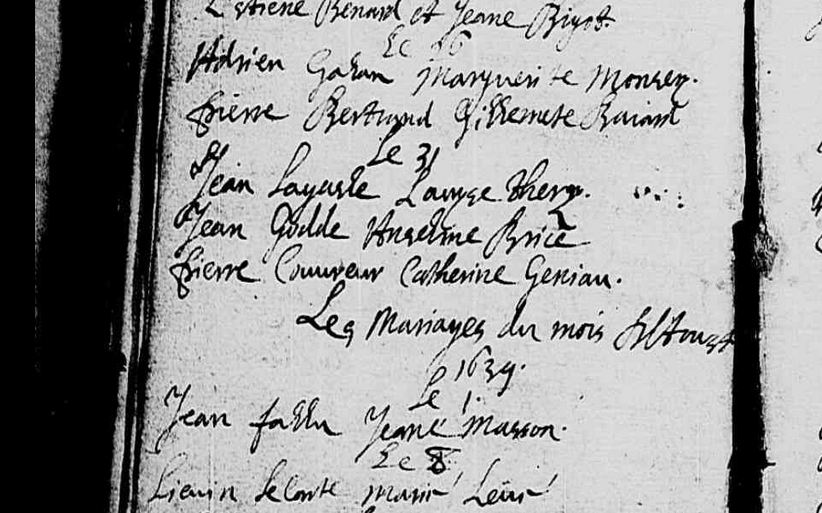 Estiene Benard et Jeane Bigot.
Le 26
Adrien Gahan Marguerite Monsey.
Pierre Bertrand Gillemete Baiard
Le 31
Jean Laguste Thery.
Jean Godde Anselme Brice
Pierre Couvreur Catherine Geniau.
Les Mariages du mois d'Aoust
1639.
Le 1.
Jean fallu Jeane Masson.
Le 8
Lieuin leconte marie